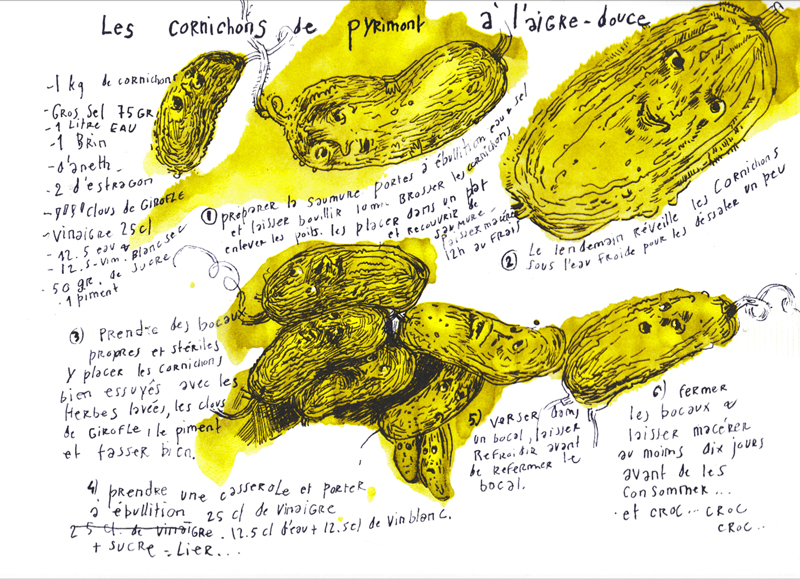 Les CORNICHONS de PYRIMONT à l'AIGRE-DOUCE
-1 kg de CORNICHONS
-GROS SEL 75 GR
-1 LITRE EAU
-1 BRIN
-d'aneth
-2 d'ESTRAGON
Clous de GIROFLE
-VINAIGRE 25cl
-12.5 eau
-12.5-Vin. Blanc sec
-50 gr. de SUCRE
.1 piment
① préparer la saumure portez à ébullition eau & sel
et laisser bouillir 10mn. BROSSER les cornichons
enlever les poils. les placer dans un pot
et recouvrir de
saumure-
laisser macérer
12h au FRAIS
② Le lendemain Réveille les CORNICHONS
sous l'eau froide pour les déssaler un peu
③ PRENDRE des bocaux
propres et stériles
y placer les CORNICHONS
bien essuyés avec les
HERBES lavées, les clous
de GIROFLE, le piment
et tasser bien.
4) prendre une casserole et porter
à ébullition 25 cl de VINAIGRE
25 cl. de VINAIGRE. 12.5 cl d'eau + 12.5cl de Vin blanc.
+ SUCRE = LIER...
5) VERSER dans
un bocal, laisser
REFROIDIR avant
de refermer le
bocal.
6) fermer
les bocaux &
laisser macérer
au moins dix jours
avant de les
consommer...
. et CROC... CROC
CROC..